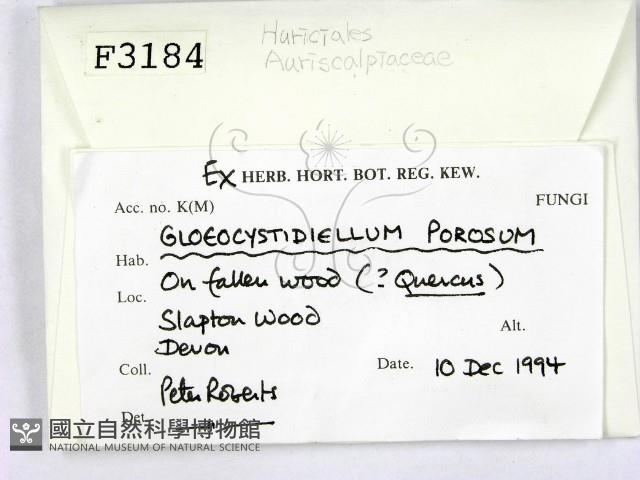 F3184
Huriciales
Auriscalpiaceae
Ex HERB. HORT. BOT. REG. KEW.
Acc. no. K(M)
FUNGI
GLOEOCYSTIDIELLUM POROSUM
Hab.
On fallen wood (? Quercus)
Loc.
Slapton Wood
Alt.
Devon
Coll.
Date. 10 Dec 1994
Peter Roberts
Det.
國立自然科學博物館
NATIONAL MUSEUM OF NATURAL SCIENCE